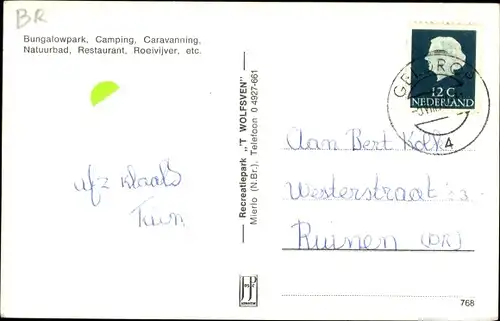 BR
Bungalowpark, Camping, Caravanning,
Natuurbad, Restaurant, Roeivijver, etc.
afz Klaas
Recreatiepark „'T WOLFSVEN"
Mierlo (N.Br.), Telefoon 0 4927-661
12 C
NEDERLAND
4
Aan Bert Kolk
Westerstraat 23
Ruinen (DR)
768